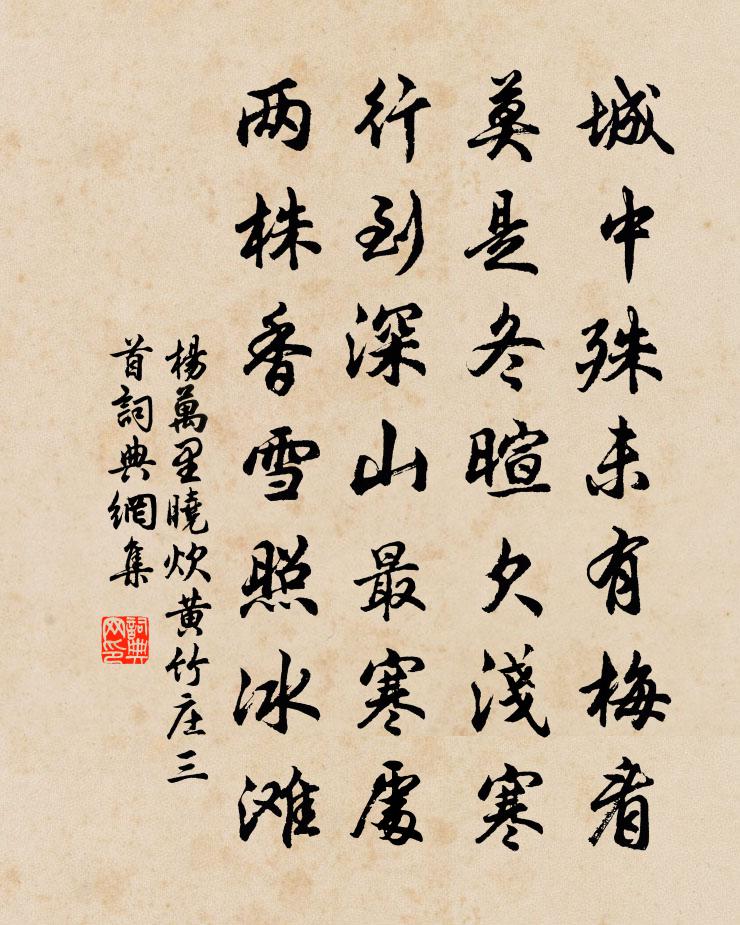 城中殊未有梅看
莫是冬暄欠淺寒
行到深山最寒處
两株香雪照冰滩
楊萬里曉炊黄竹庄三
首詞典網集
詞典網印